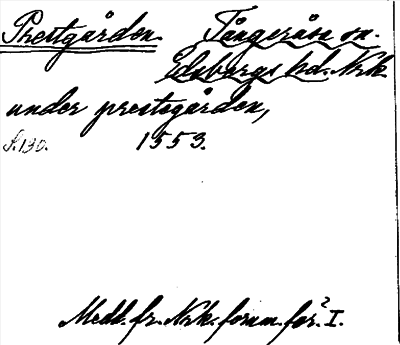 Prestgården. Tångeråsa sn.
Edsbergs hd. Nrk.
under prestegården,
S. 130. 1553.
Medd. fr. Nrk. fornm. för. I.